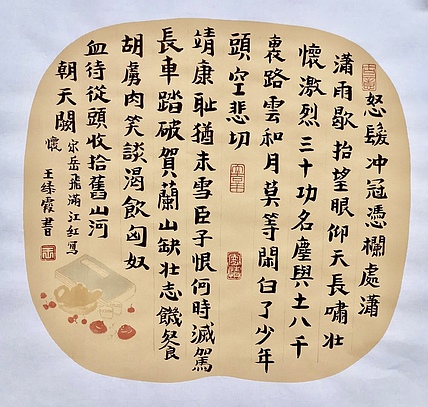 怒髮冲冠憑欄處瀟
瀟雨歇抬望眼仰天長嘯壯
懷激烈三十功名塵與土八千
裏路雲和月莫等閑白了少年
頭空悲切
靖康耻猶未雪臣子恨何時滅駕
長車踏破賀蘭山缺壯志饑餐
胡虜肉笑談渴飲匈奴
血待從頭收拾舊山河
朝天闕
宋岳飛滿江紅寫
懷
王霞書